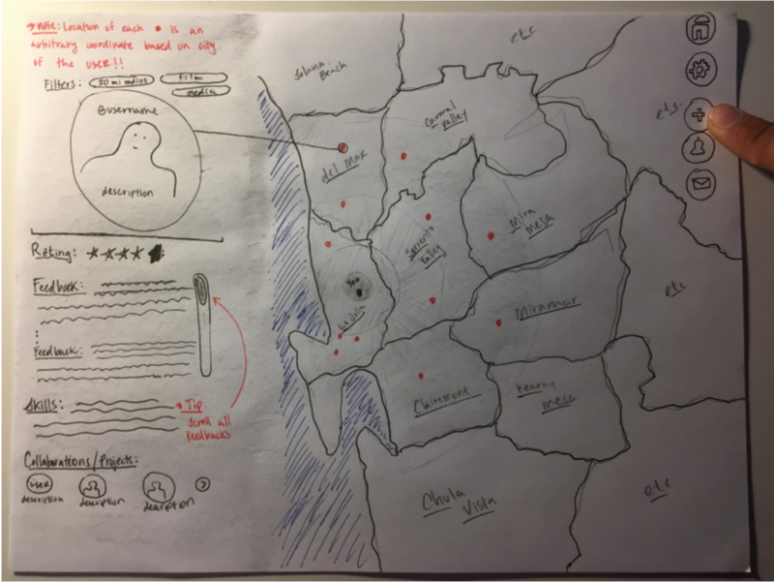 → Note: Location of each • is an
arbitrary coordinate based on city
of the user!!
Filters: 20 mi radius Film
media
@username
description
Rating:
Feedback:
Feedback:
Skills:
→ Tip:
Scroll all
feedbacks
Collaborations/Projects:
user
description description description >
Solana
Beach
etc
Carmel
Valley
etc.
del Mar
Sorrento
Valley
Mira
mesa
You
La Jolla
Miramar
etc
Clairemont
Kearny
mesa
Chula
Vista
etc